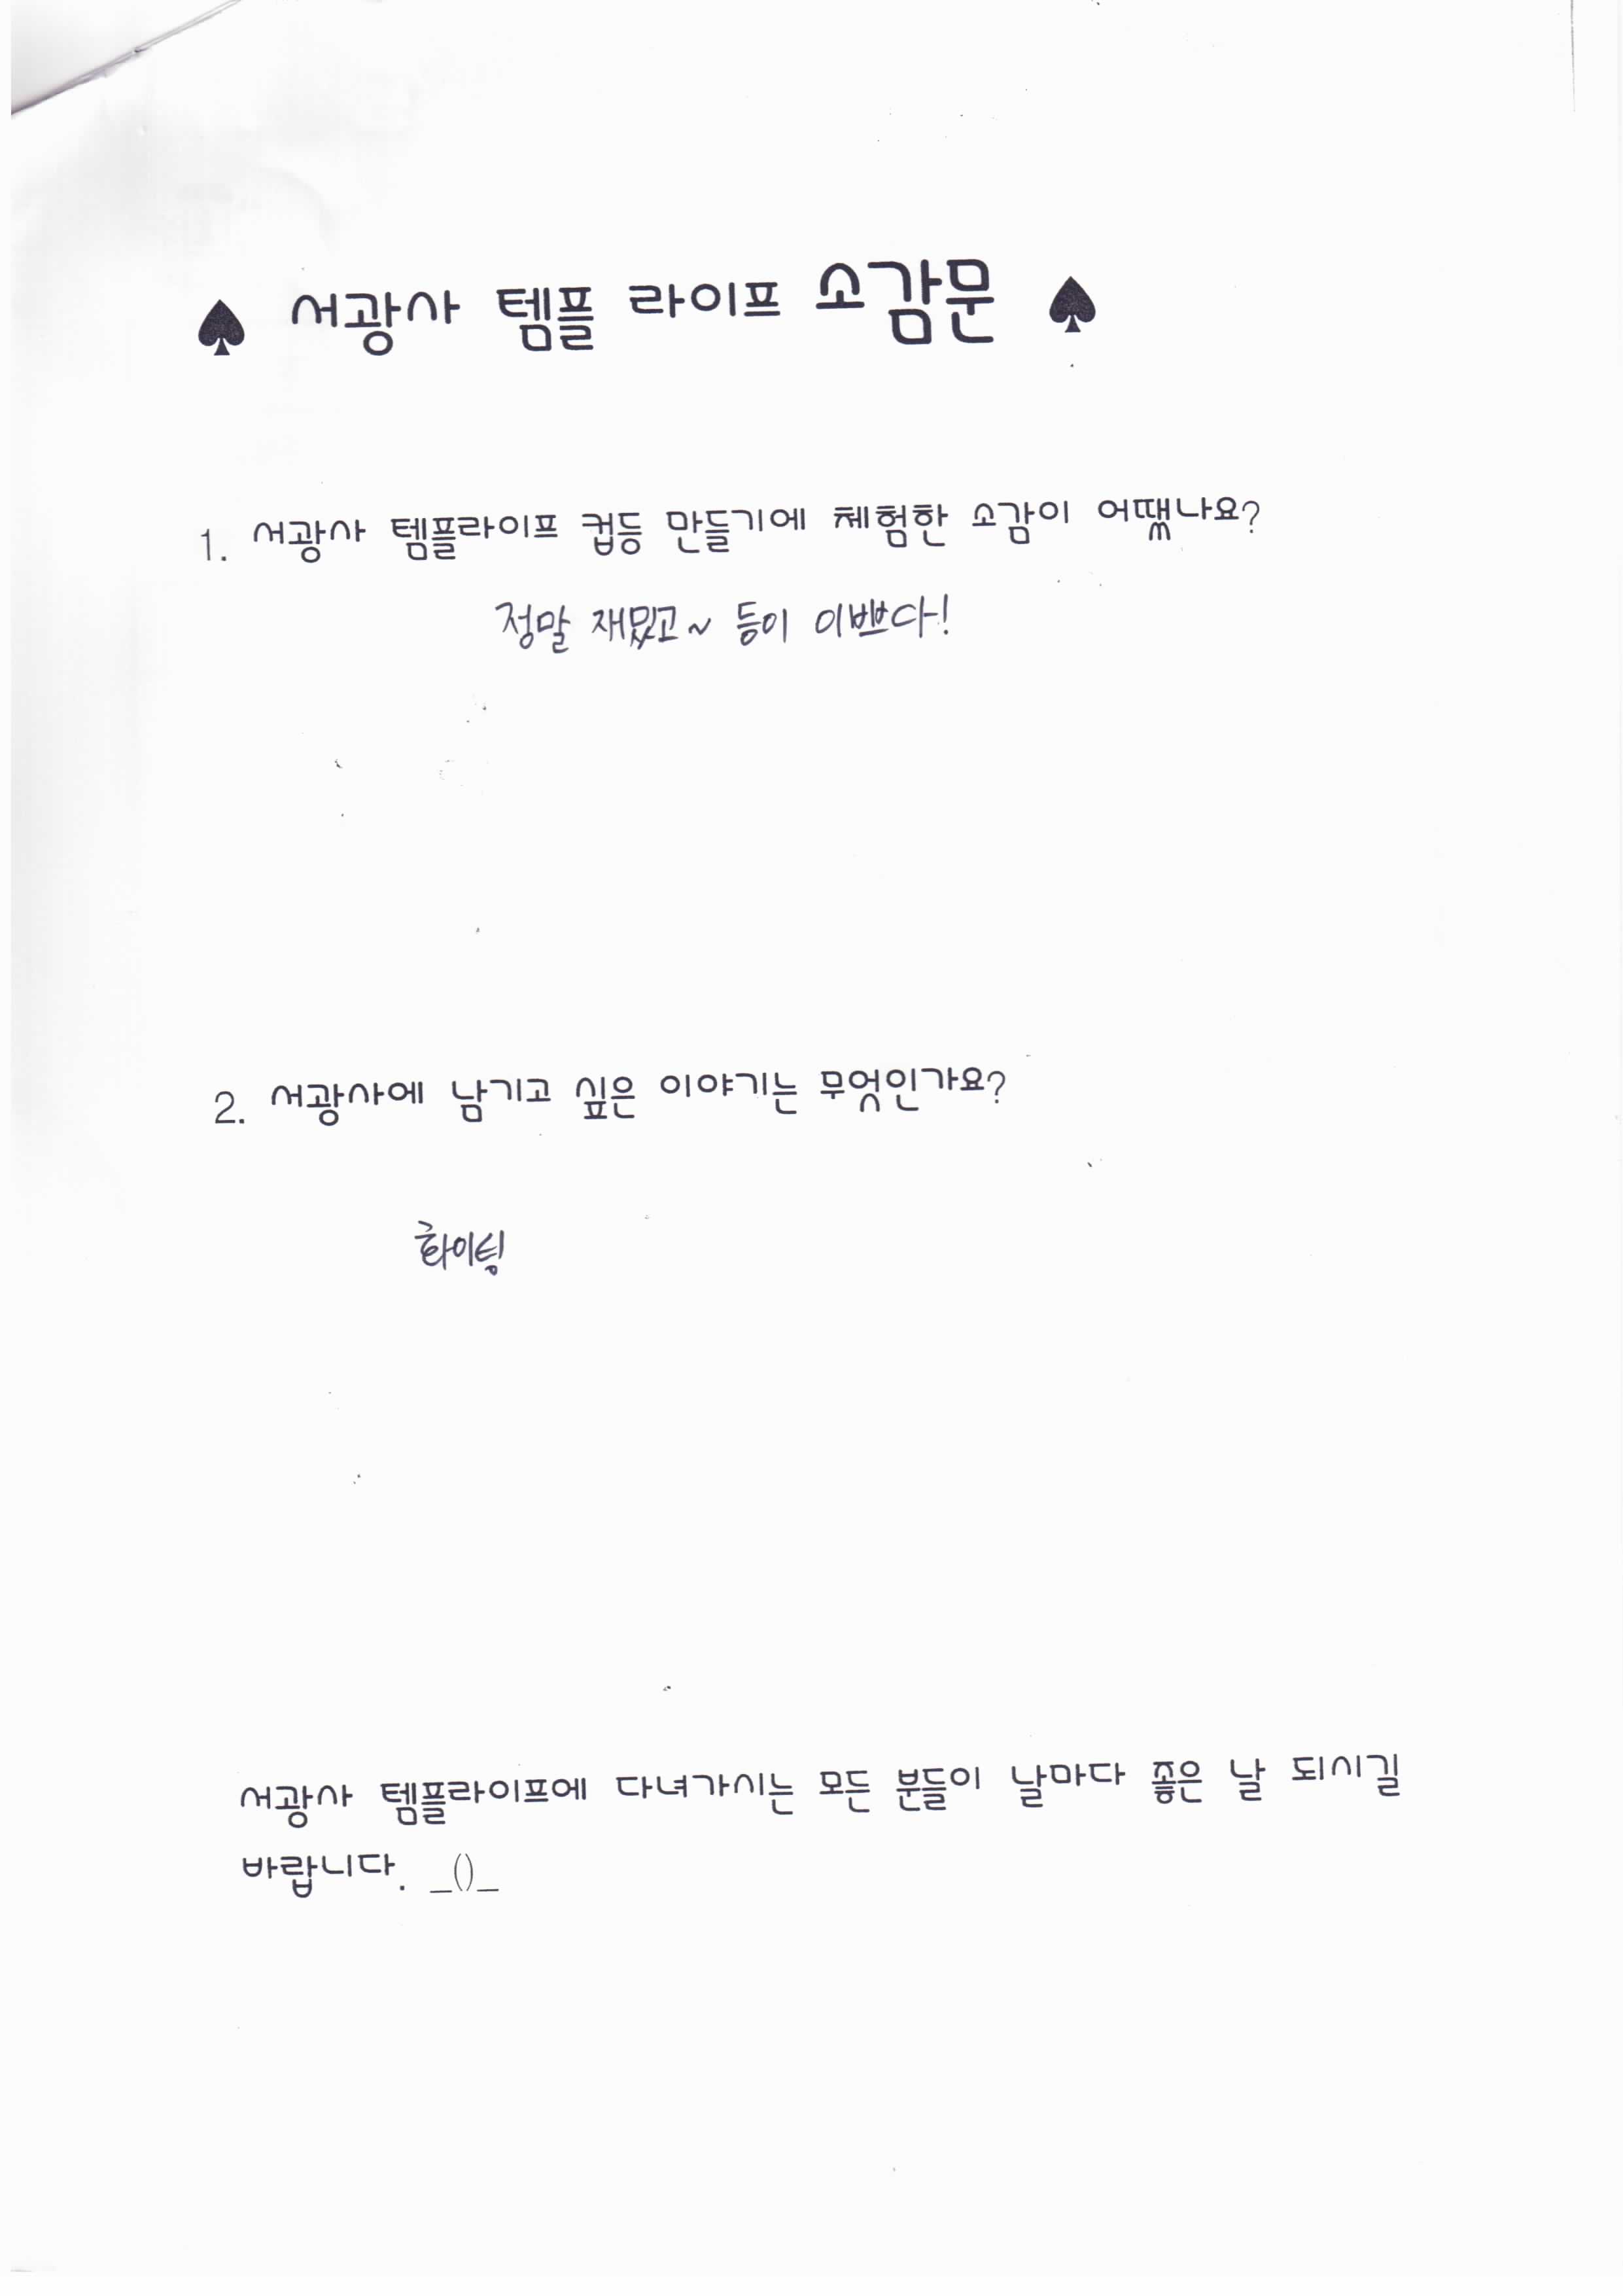 ♠ 서광사 템플 라이프 소감문 ♠
1. 서광사 템플라이프 컵등 만들기에 체험한 소감이 어땠나요?
정말 재밌고~ 등이 이쁘다!
2. 서광사에 남기고 싶은 이야기는 무엇인가요?
화이팅
서광사 템플라이프에 다녀가시는 모든 분들이 날마다 좋은 날 되시길
바랍니다. _()_